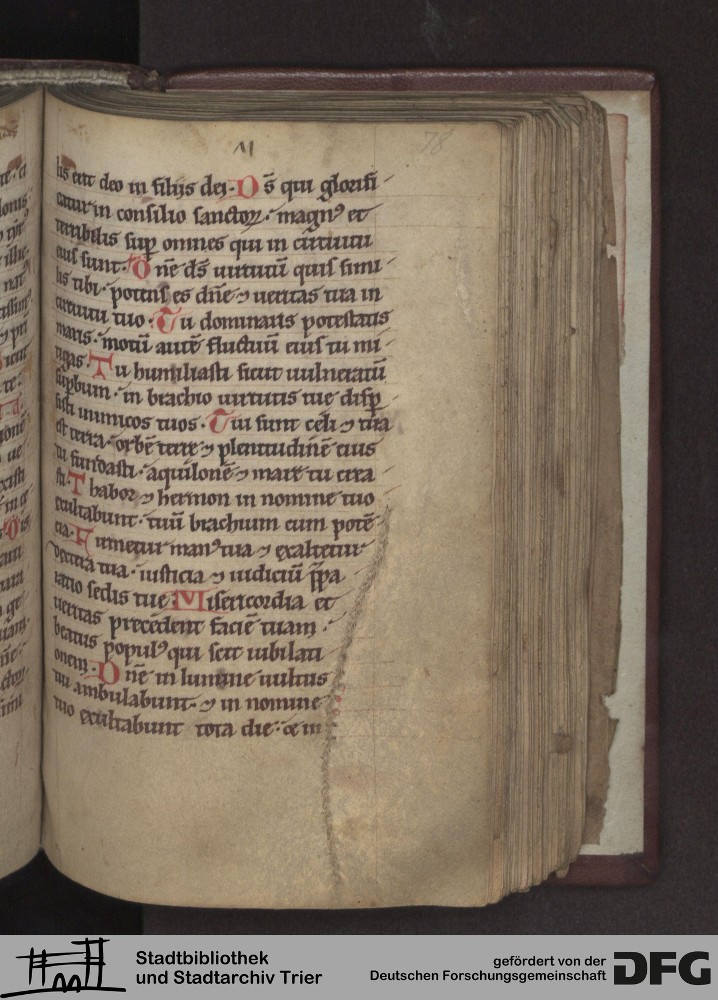 M
78
lis erit deo in filijs dei. Ds̄ qui glorifi
catur in consilio sanctoꝝ. magnꝰ et
terribilis suꝑ omnes qui in circuitu
eius sunt. Dn̄e ds̄ uirtutū quis simi
lis tibi. potens es dn̄e ⁊ ueritas tua in
circuitu tuo. Tu dominaris potestatis
maris. motū autē fluctuū eius tu mi
tigas. Tu humiliasti sicut uulneratū
suꝑbum. in brachio uirtutis tue disꝑ
sisti inimicos tuos. Tui sunt celi ⁊ tua
est terra. orbē terre ⁊ plenitudinē eius
tu fundasti. aquilonē ⁊ mare tu crea
sti. Thabor ⁊ hermon in nomine tuo
exultabunt. tuū brachium cum potē
cia. Firmetur manꝰ tua ⁊ exaltetur
dextera tua. iusticia ⁊ iudiciū p̄pa
ratio sedis tue. Misericordia et
ueritas precedent faciē tuam.
beatus populꝰ qui scit iubilati
onem. Dn̄e in lumine uultus
tui ambulabunt. ⁊ in nomine
tuo exultabunt tota die. ⁊ in
Stadtbibliothek
und Stadtarchiv Trier
gefördert von der
Deutschen Forschungsgemeinschaft
DFG